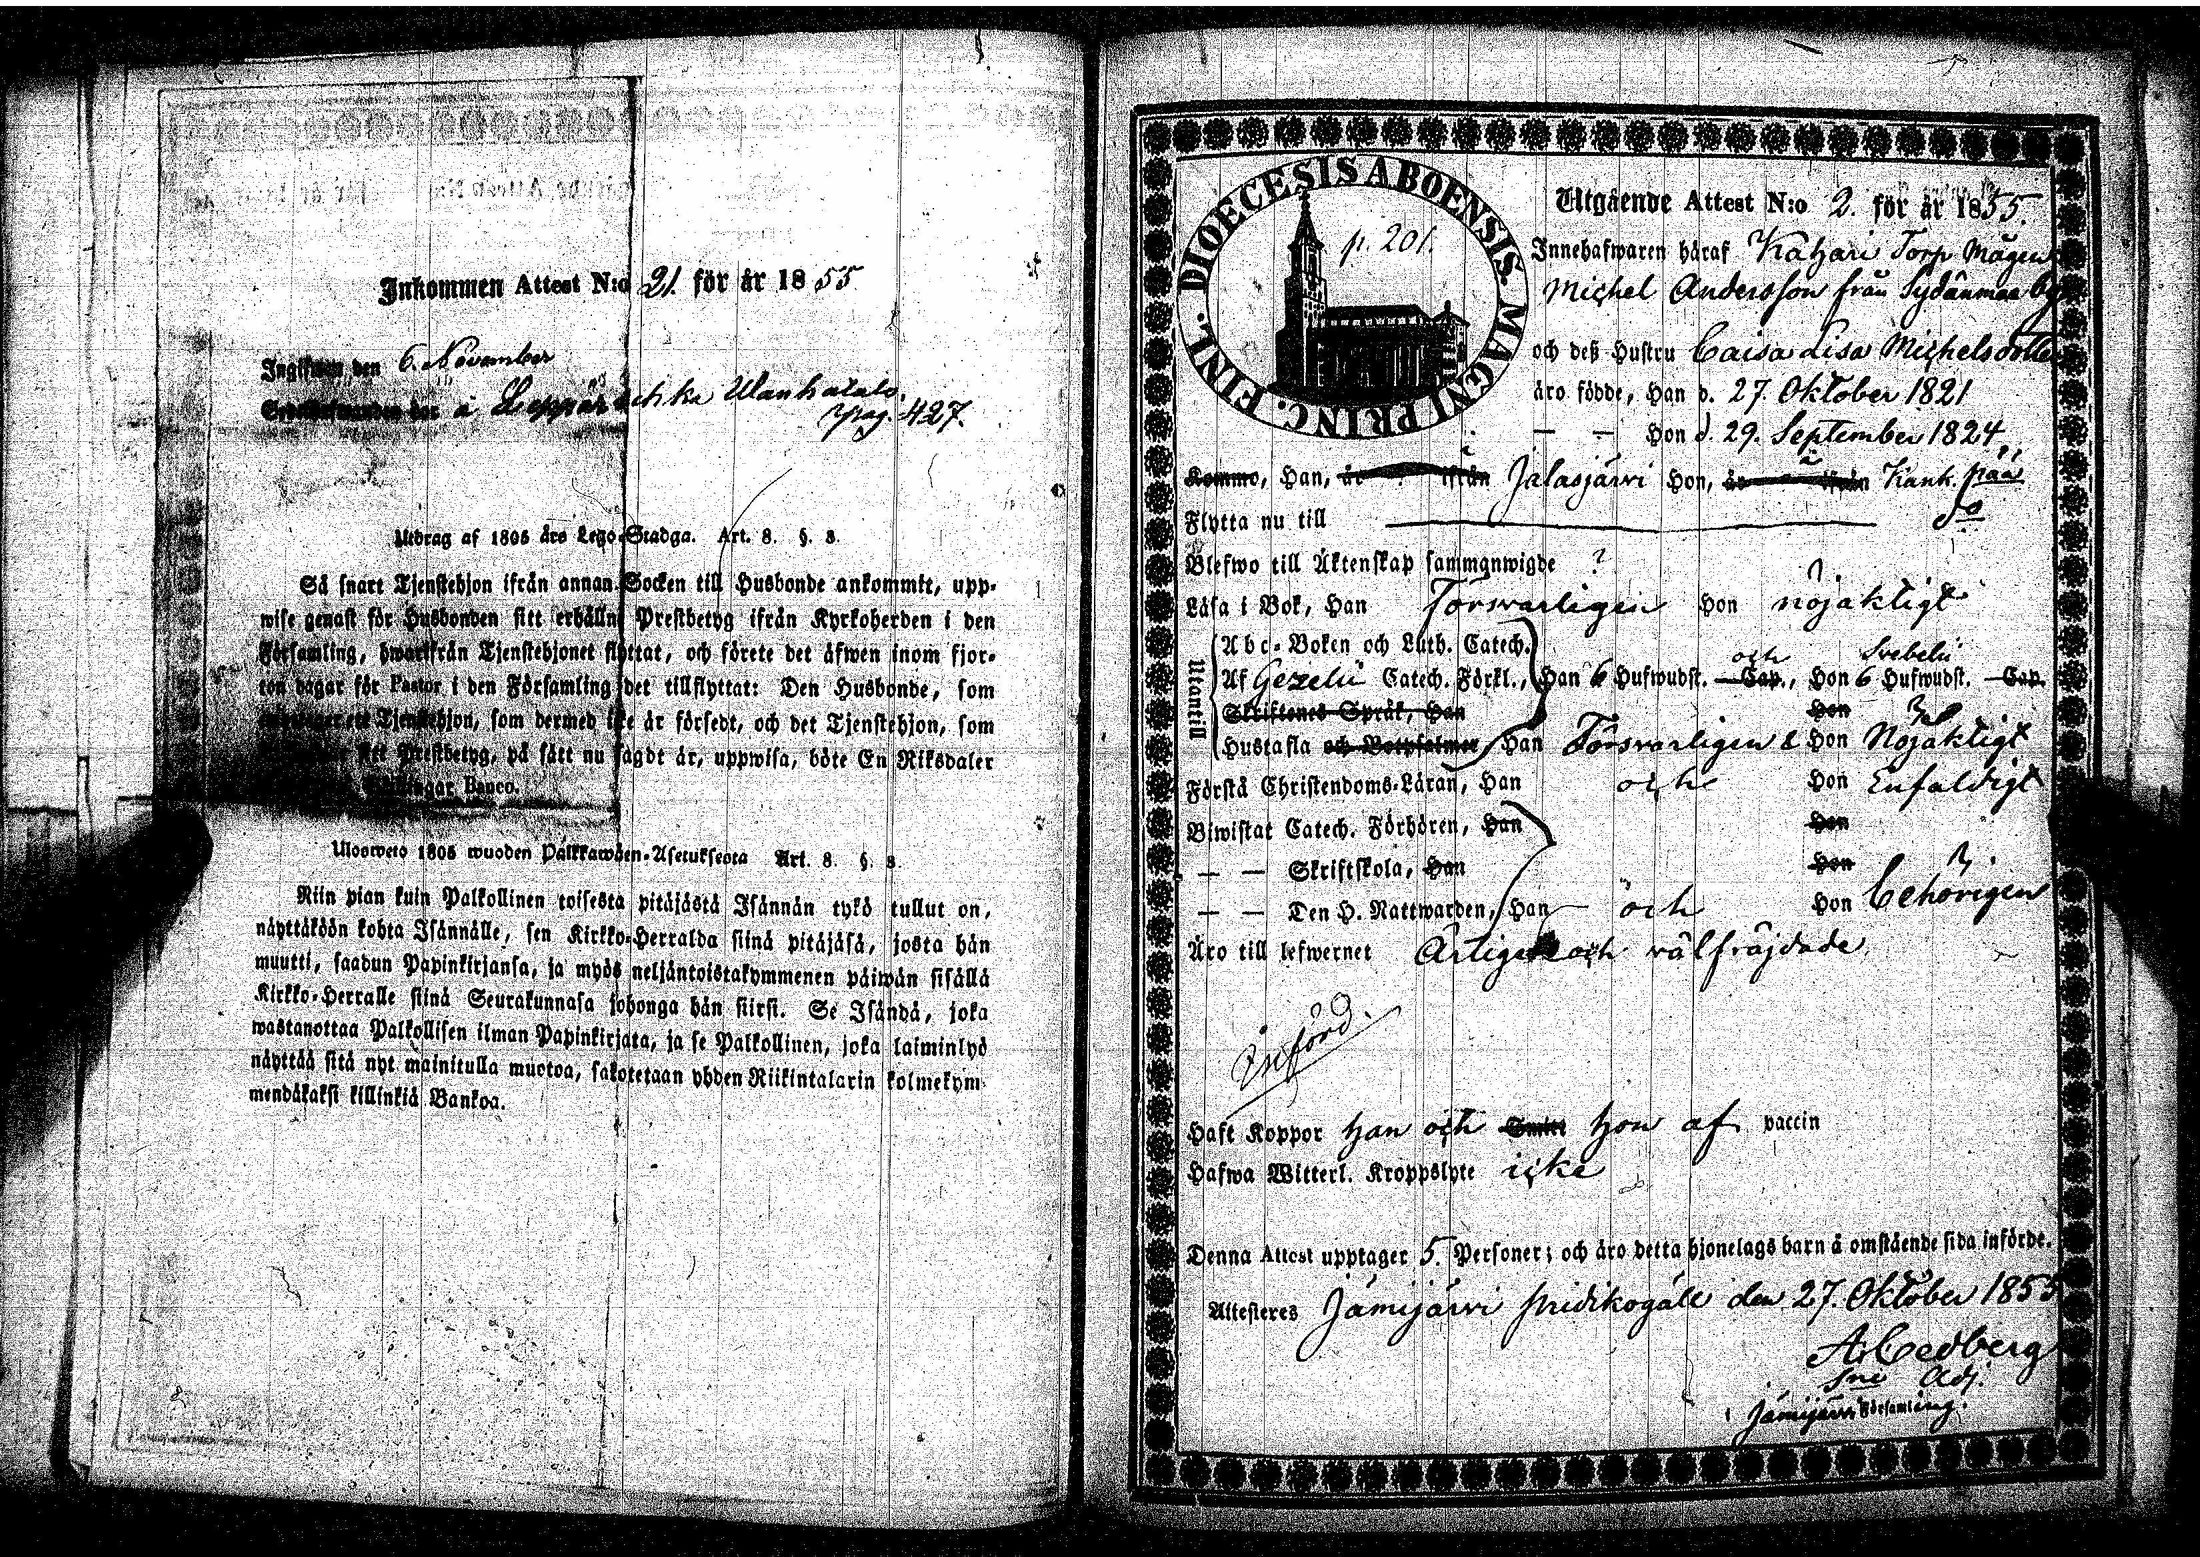 Inkommen Attest N:o 21. för år 1855
Ingifwen den 6. November
å Ylanhatalo.
pag. 427.
Utdrag af 1805 års Lego-Stadga. Art. 8. §. 8.
Så snart Tjenstehjon ifrån annan Socken till Husbonde ankommit, upp-
wise genast för Husbonden sitt erhållne Prestbetyg ifrån Kyrkoherden i den
Församling, hwarifrån Tjenstehjonet flyttat, och förete det äfwen inom fjor-
ton dagar för Pastor i den Församling det tillflyttat: Den Husbonde, som
Tjenstehjon, som dermed icke är försedt, och det Tjenstehjon, som
sitt Prestbetyg, på sätt nu sagdt är, uppwisa, böte En Riksdaler
Skillingar Banco.
Ulosweto 1805 wuoden Palkkawäen-Asetuksesta Art. 8. §. 8.
Niin pian kuin Palkollinen toisesta pitäjästä Isännän tykö tullut on,
näyttäköön kohta Isännälle, sen Kirkko-Herralda siinä pitäjäsä, josta hän
muutti, saadun Papinkirjansa, ja myös neljäntoistakymmenen päiwän sisällä
Kirkko-Herralle siinä Seurakunnasa johonga hän siirsi. Se Isändä, joka
wastanottaa Palkollisen ilman Papinkirjata, ja se Palkollinen, joka laiminlyö
näyttää sitä nyt mainitulla muotoa, sakotetaan yhden Riikintalarin kolmekym-
mendäkaksi killinkiä Bankoa.
DIOECESIS ABOENSIS. MAGNI PRINC. FINL.
p. 201.
Utgående Attest N:o 2. för år 1855.
Innehafwaren häraf Katzari Torp Mågen
Michel Andersson från Sydänmaa by
och deß Hustru Caisa Lisa Michelsdotter
äro födde, Han d. 27. Oktober 1821
— — Hon d. 29. September 1824
Kommo, Han, är ifrån i Jalasjärvi Hon, är ifrån i Kank.pää
Flytta nu till do
Blefwo till Äktenskap sammanwigde ?
Läsa i Bok, Han Försvarligen Hon nöjaktigt
Utantill
Abc-Boken och Luth. Catech.
Af Gezelii Catech. Förkl., Han 6 Hufwudst. och Cap., Hon 6 Hufwudst. Svebelii Cap.
Skriftenes Språk, Han Hon
Hustafla och Botpsalmer Han Försvarligen & Hon Nöjaktigt
Förstå Christendoms-Läran, Han och Hon Enfaldigt
Biwistat Catech. Förhören, Han Hon
— — Skriftskola, Han Hon
— — Den H. Nattwarden, Han och Hon behörigen
Äro till lefwernet Ärtige och välfräjdade
införd.
Haft Koppor han och Smitt hon af vaccin
Hafwa Witterl. Kroppslyte icke
Denna Attest upptager 5. Personer; och äro detta hjonelags barn å omstående sida införde.
Attesteres Jämijärvi predikogäll den 27. Oktober 1855
A. Cedberg
Adj.
i Jämijärvi Församling.